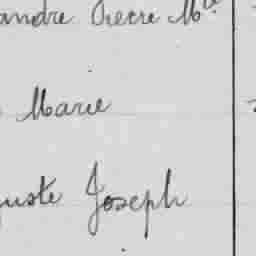 andre Pierre Mie
Marie
guste Joseph